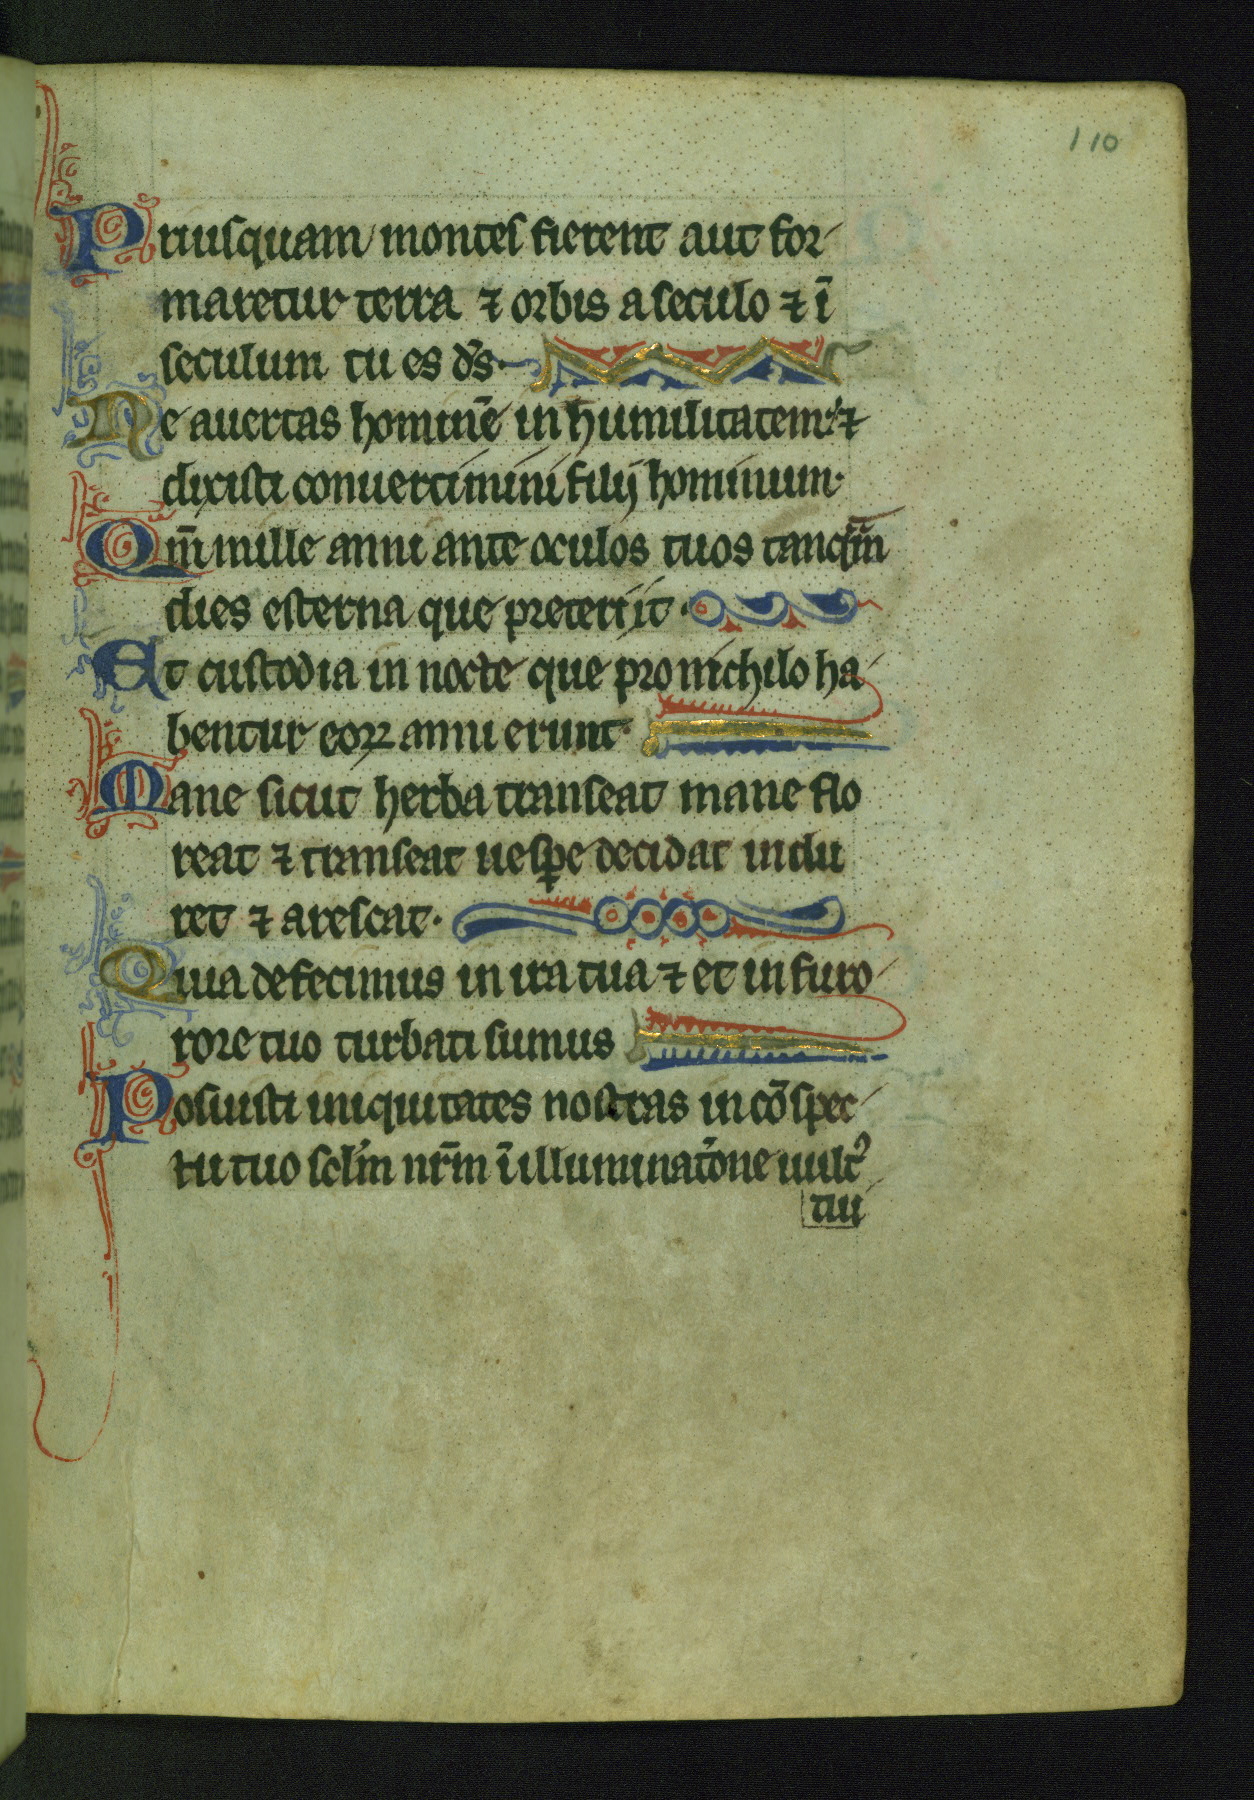 110
Priusquam montes fierent aut for
maretur terra ⁊ orbis a seculo ⁊ ī
seculum tu es ds̄.
Ne auertas hominē in humilitatem: ⁊
dixisti conuertimini filij hominum.
Qm̄ mille anni ante oculos tuos tanqͣm̄
dies esterna que preteriit.
Et custodia in nocte que pro nichilo ha
bentur eoꝝ anni erunt.
Mane sicut herba transeat mane flo
reat ⁊ transeat uesꝑe decidat indu
ret ⁊ arescat.
Quia defecimus in ira tua ⁊ et in furo
rore tuo turbati sumus
Posuisti iniquitates nostras in cōspec
tu tuo sclm̄ nrm̄ ī illuminatōne uultꝰ
tui